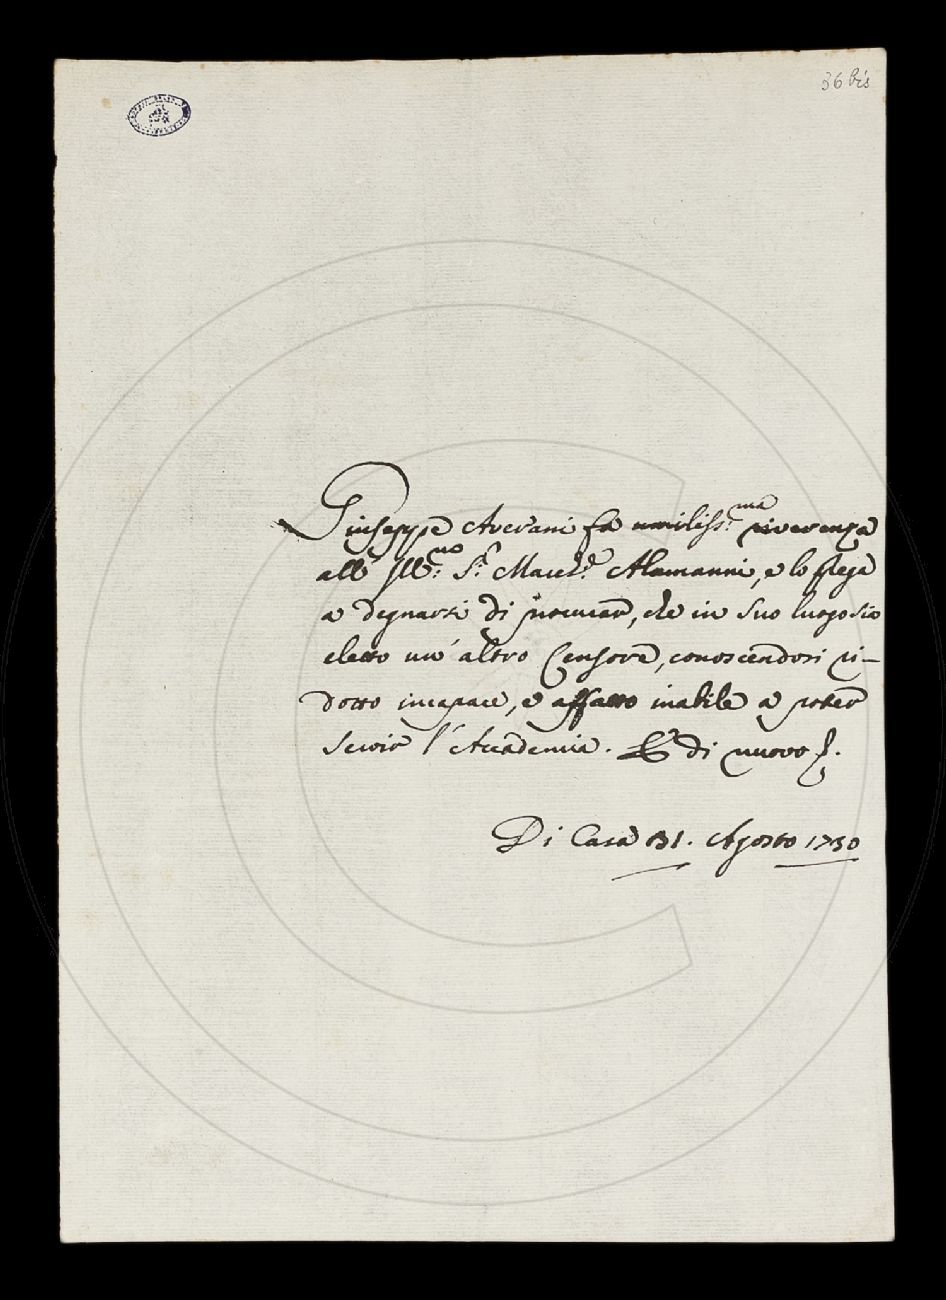 36 bis
Giuseppe Averani fa umiliss:ma riverenza
all' Ill:mo S:r Alamanni, e lo prega
a degnarsi di procurar, che in suo luogo sia
eletto un' altro Censore, conoscendosi ri-
dotto incapace, e affatto inabile a poter
servir l'Accademia. E di nuovo
Di Casa 31. Agosto 1730